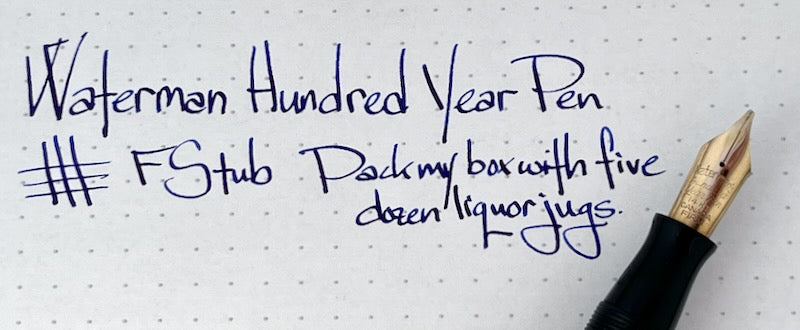 Waterman Hundred Year Pen
F Stub Pack my box with five
dozen liquor jugs.
CANADA